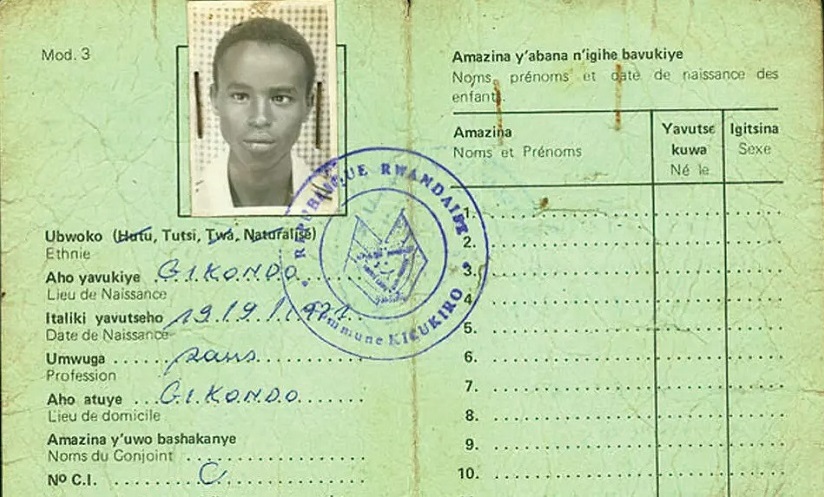 Mod. 3
Ubwoko (Hutu, Tutsi, Twa, Naturalisé)
Ethnie
Aho yavukiye GIKONDO
Lieu de Naissance
Italiki yavutseho 19/9/1971
Date de Naissance
Umwuga sans
Profession
Aho atuye GIKONDO
Lieu de domicile
Amazina y'uwo bashakanye
Noms du Conjoint
No C.I. C
REPUBLIQUE RWANDAISE
Commune KICUKIRO
Amazina y'abana n'igihe bavukiye
Noms, prénoms et date de naissance des
enfants.
Amazina Yavutse Igitsina
Noms et Prénoms kuwa Sexe
Né le
1.
2.
3.
4.
5.
6.
7.
8.
9.
10.